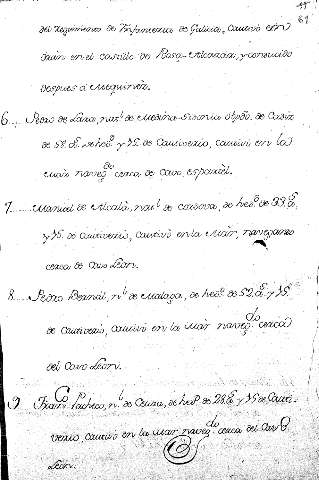 61
del Regimiento de Infanteria de Galicia, cautivó en
Oran en el castillo de Rosa-Alcazar, y conducido
despues á Mequinéz.
6... Pedro de Lara, nat.l de Medina-Sidonia obpdo. de Cadiz
de 52 a.s de hed.d y 15 de Cautiverio, cautivó en la
Mar naveg.do cerca de Cavo espartél.
7... Manuel de Alcalá, nat.l de Cordova, de hed.d de 33 a.s
y 15 de cautiverio, cautivó en la Mar, navegando
cerca de Cavo Leon.
8... Pedro Bernál, n.l de Malaga, de hed.d de 52 a.s y 15
de cautiverio, cautivó en la Mar naveg.do cerca
del Cavo Leon.
9... Fran.co Pacheco, n.l de Ceuta, de hed.d de 28 a.s y 15 de Cauti-
verio, cautivó en la Mar naveg.do cerca del Cavo
Leon.